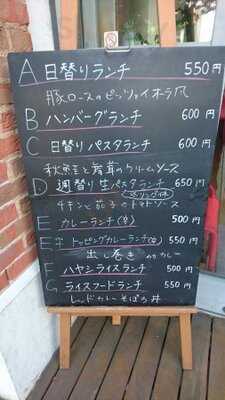 A 日替りランチ 550円
豚ロースのピッツァイオーラ風
B ハンバーグランチ 600円
C 日替りパスタランチ 600円
秋鮭と舞茸のクリームソース
D 週替り生パスタランチ 650円
チキンと茄子のトマトソース
E カレーランチ(辛) 500円
E トッピングカレーランチ(辛) 550円
出し巻き カレー
F ハヤシライスランチ 500円
G ライスフードランチ 550円
レッドカレーそぼろ丼